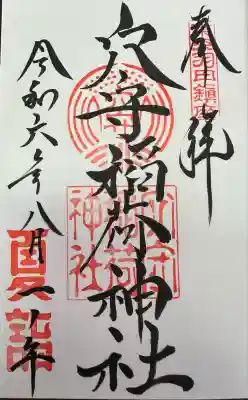 奉拝
羽田鎮守
穴守稲荷神社
穴守
稲荷
神社
令和六年八月一ノ午
夏詣